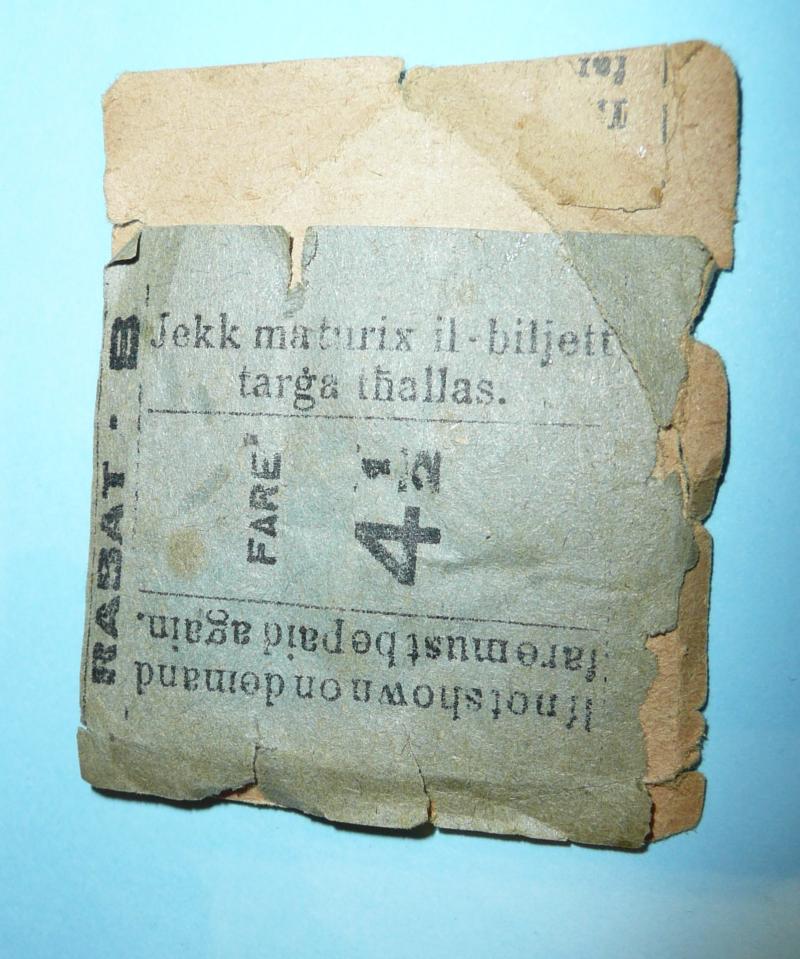 Jekk maturix il-biljett
targa tħallas.
FARE
4½
If not shown on demand
fare must be paid again.
RABAT · B